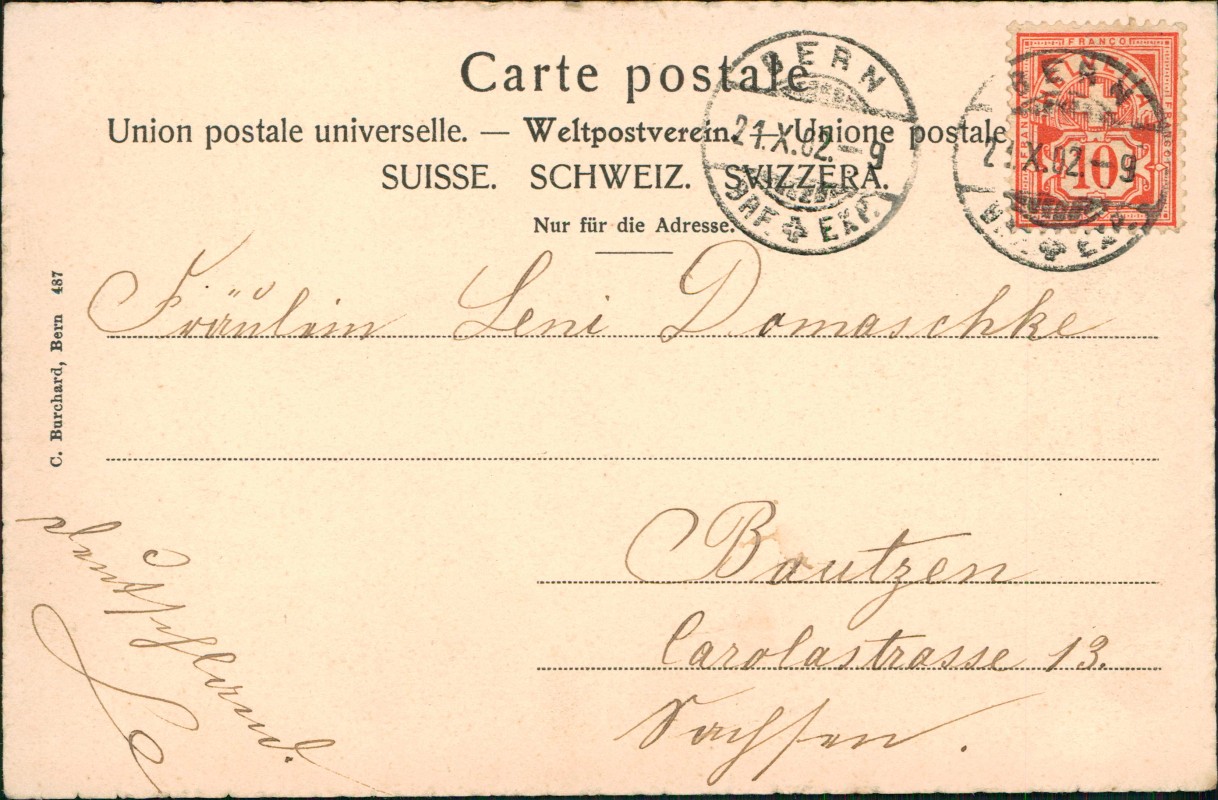 Carte postale
Union postale universelle. — Weltpostverein. — Unione postale
SUISSE. SCHWEIZ. SVIZZERA.
Nur für die Adresse.
BERN
21.X.02.-9
BRF. EXP.
BERN
21.X.02.-9
BRF. EXP.
FRANCO
10
C. Burchard, Bern 487
Fräulein Leni Domaschke
Bautzen
Carolastrasse 13.
Sachsen.
Deutschland.